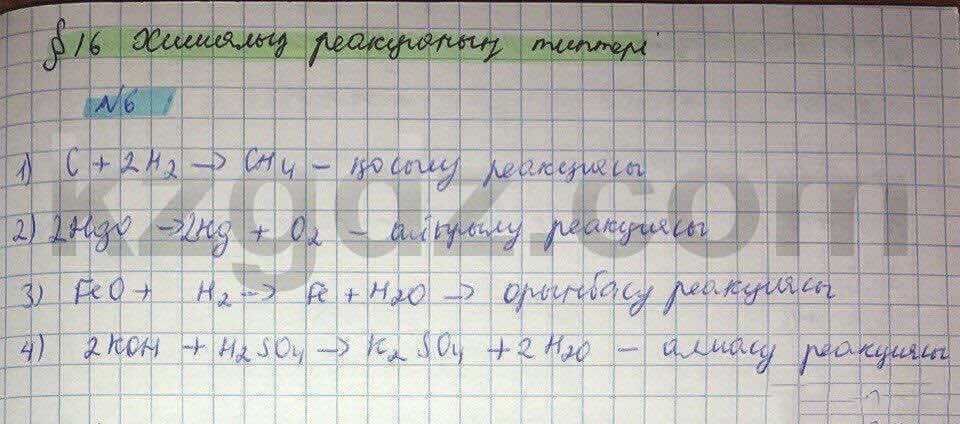 § 16 Химиялық реакцияның типтері
№6
1) C + 2H2 → CH4 – қосылу реакциясы
2) 2HgO → 2Hg + O2 – айырылу реакциясы
3) FeO + H2 → Fe + H2O → орынбасу реакциясы
4) 2KOH + H2SO4 → K2SO4 + 2H2O – алмасу реакциясы
kzgdz.com